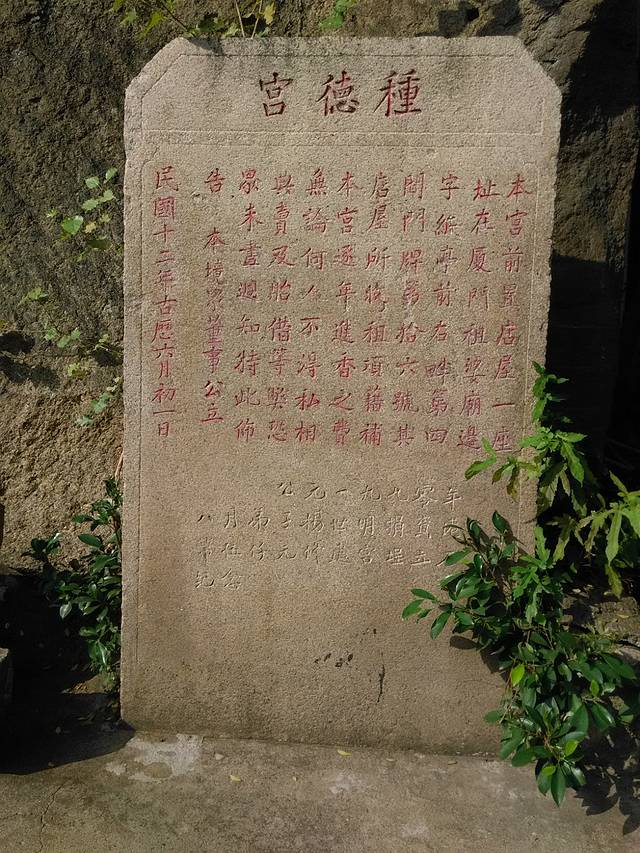 種德宮
本宮前置店屋一座
址在廈門祖婆廟邊
字紙亭前右畔第四
間門牌第拾六號其
店屋所收租項藉補
本宮逐年進香之費
無論何人不得私相
典賣及胎借等弊恐
眾未盡週知特此佈
告 本境眾董事公立
民國十二年古曆六月初一日
年
九捐埕
九明宮
一世
元楊
公元
弟仔
月伍
八